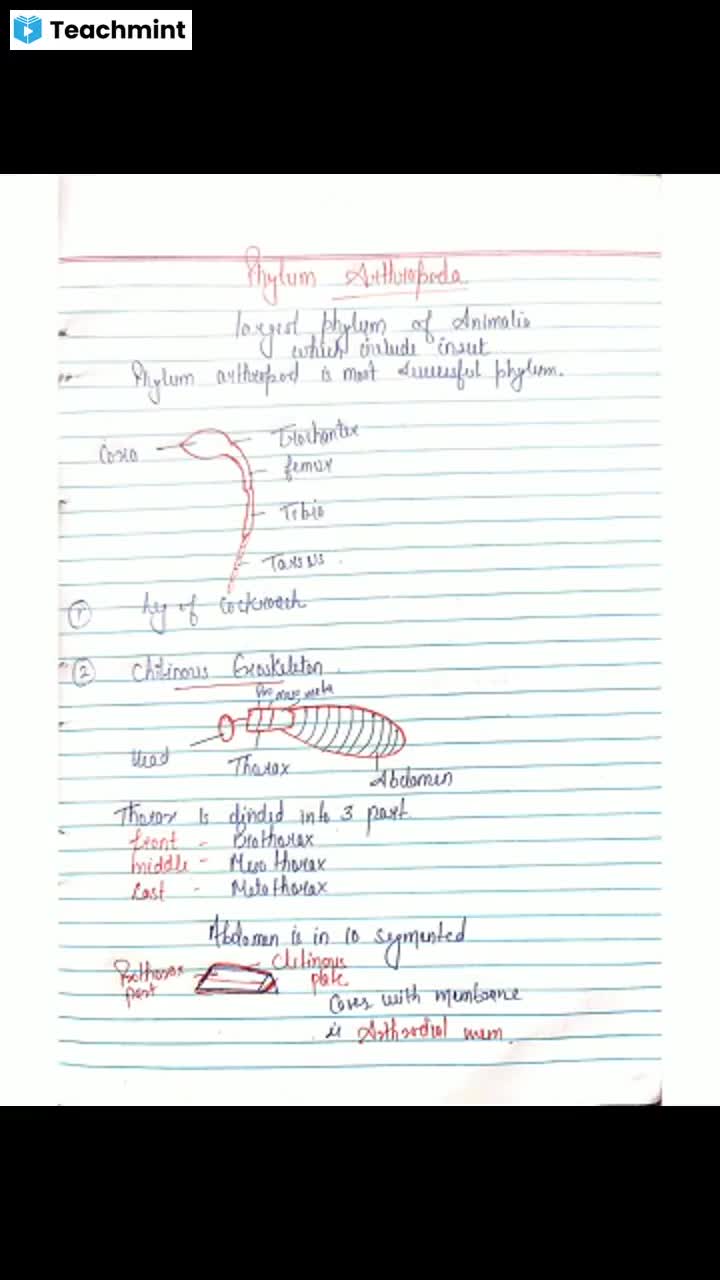 Teachmint
Phylum Arthropoda
largest phylum of Animalia
which include insect
Phylum arthropod is most successful phylum.
Coxa
Trochanter
femur
Tibia
Tarsus
① leg of Cockroach
② Chitinous Exoskeleton
Pro meso meta
Head
Thorax
Abdomen
Thorax is divided into 3 part
front - Prothorax
middle - Meso thorax
Last - Metathorax
Abdomen is in 10 segmented
Prothorax
part
Chitinous
plate
Cover with membrane
is Arthrodial mem.